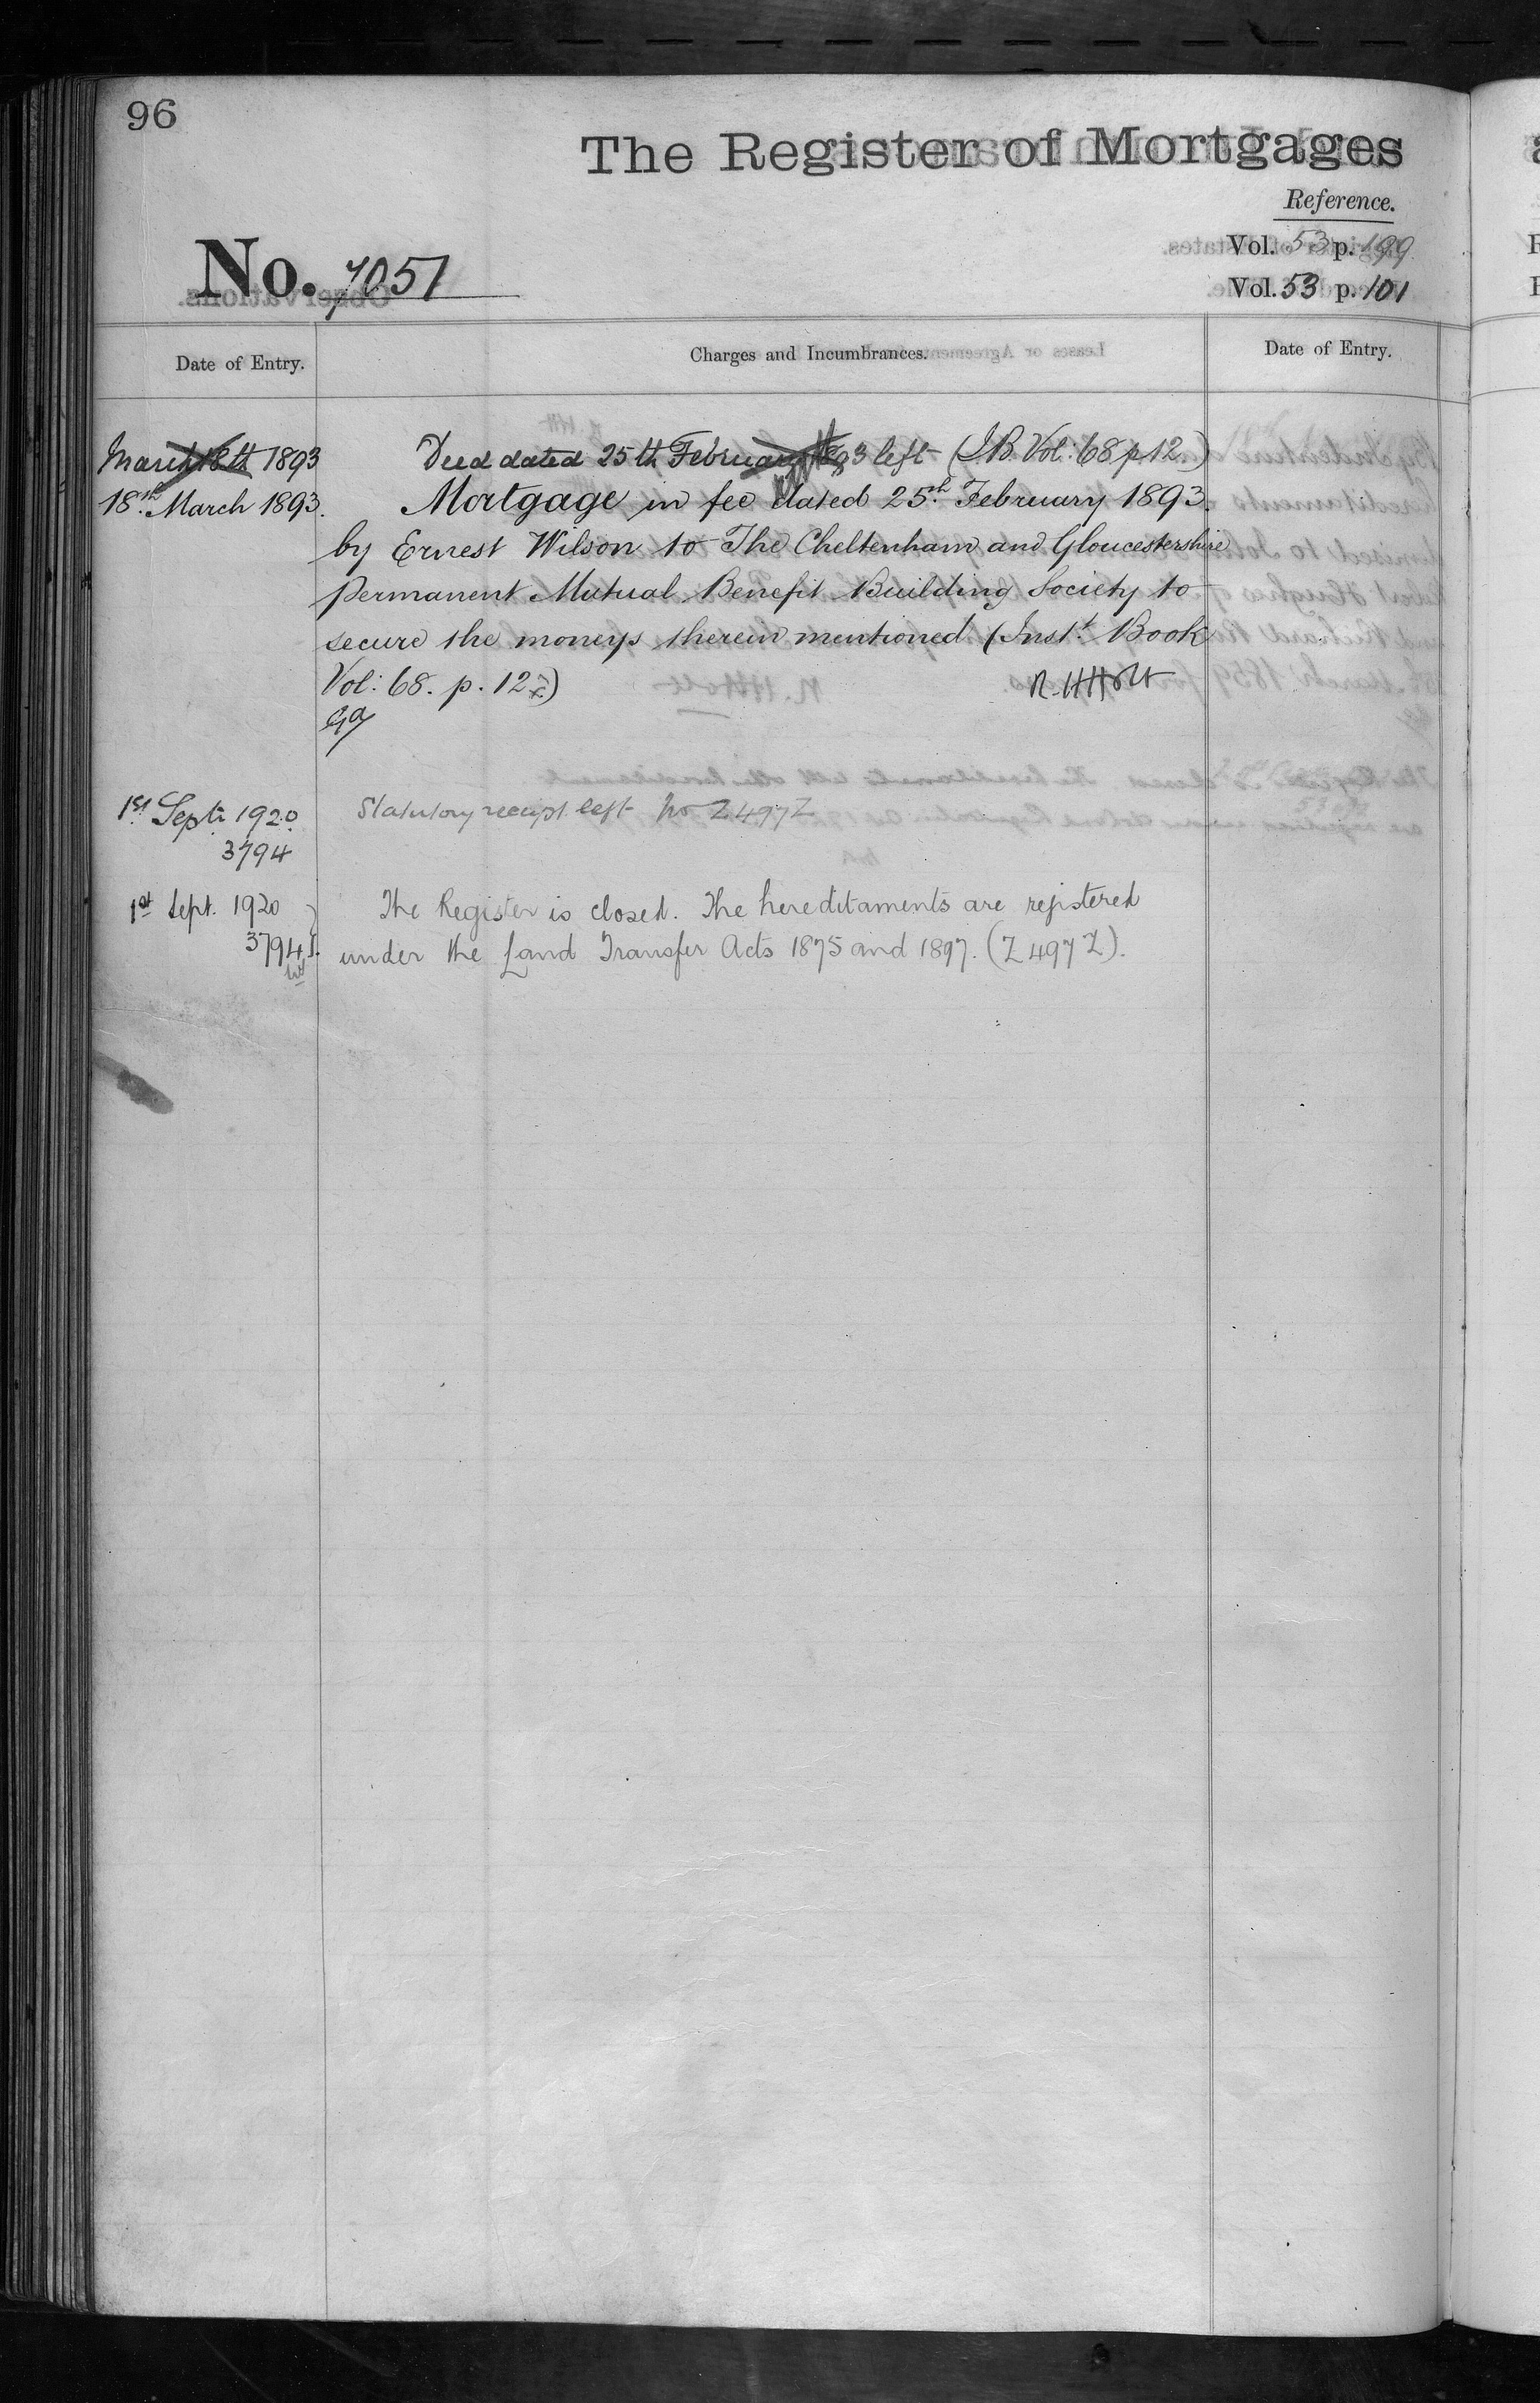 96
The Register of Mortgages
Reference.
No. 7051
Vol. 53 p. 199
Vol. 53 p. 101
Date of Entry.
Charges and Incumbrances.
Date of Entry.
March 18th 1893
Deed dated 25th February 1893 left (I.B. Vol: 68 p 12.)
18th March 1893.
Mortgage in fee dated 25th February 1893.
by Ernest Wilson to The Cheltenham and Gloucestershire
Permanent Mutual Benefit Building Society to
secure the moneys therein mentioned (Inst. Book
Vol: 68. p. 12
R. H Holt
1st Sept. 1920
Statutory receipt left No Z497Z
3794
1st Sept. 1920
The Register is closed. The hereditaments are registered
3794
under the Land Transfer Acts 1875 and 1897. (Z497Z).